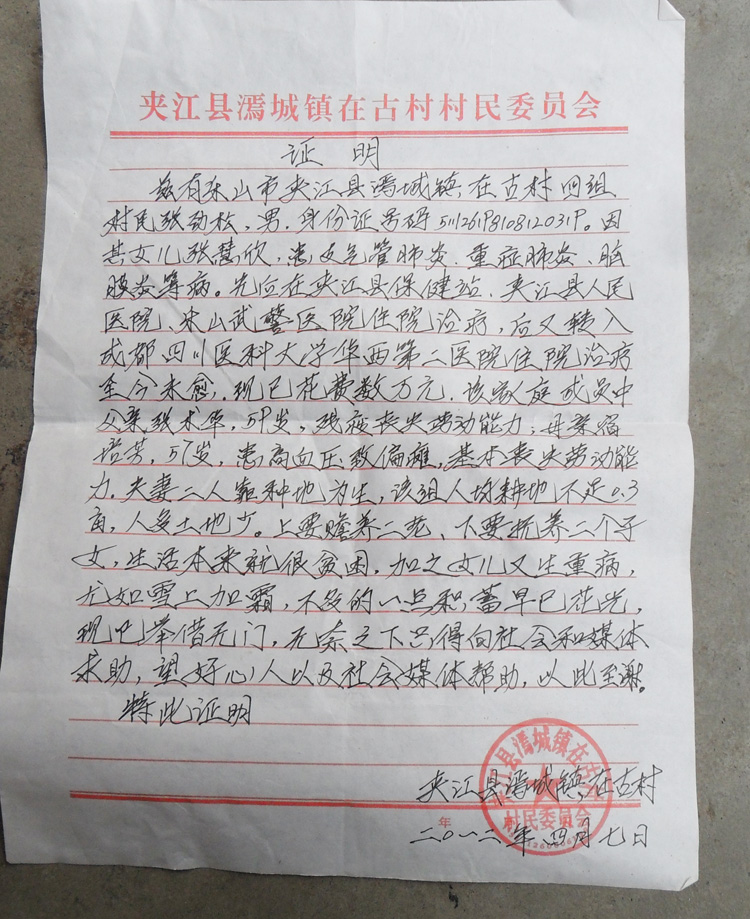 夹江县漹城镇在古村村民委员会
证 明
兹有乐山市夹江县漹城镇在古村四组
村民张劲松，男，身份证号码511126198108120319。因
其女儿张慧欣，患支气管肺炎、重症肺炎、脑
膜炎等病。先后在夹江县保健站、夹江县人民
医院、乐山武警医院住院治疗，后又转入
成都四川医科大学华西第二医院住院治疗
至今未愈，现已花费数万元，该家庭成员中
父亲张术华，59岁，残症丧失劳动能力；母亲宿
培芳，57岁，患高血压致偏瘫，基本丧失劳动能
力。夫妻二人靠种地为生，该组人均耕地不足0.3
亩，人多土地少。上要赡养二老、下要抚养二个子
女，生活本来就很贫困，加之女儿又生重病，
尤如雪上加霜，不多的一点积蓄早已花光，
现已举借无门，无奈之下只得向社会和媒体
求助，望好心人以及社会媒体帮助，以此至谢。
特此证明
夹江县漹城镇在古村
村民委员会
年 月 日
二〇一二年四月七日